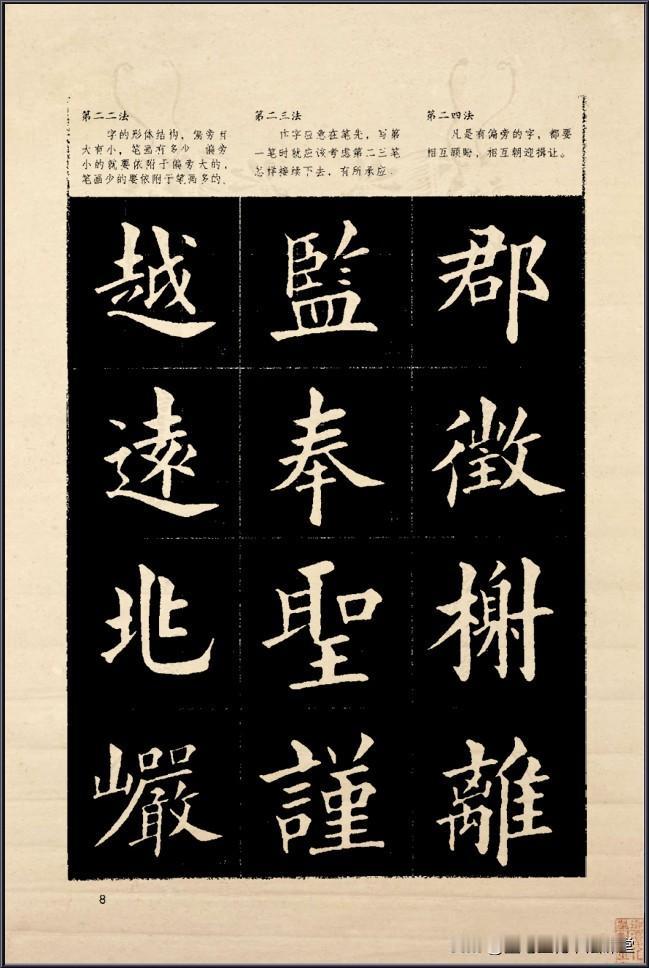 第二二法
字的形体结构，偏旁有
大有小，笔画有多少，偏旁
小的就要依附于偏旁大的，
笔画少的要依附于笔画多的。
第二三法
作字应意在笔先，写第
一笔时就应该考虑第二三笔
怎样接续下去，有所承应。
第二四法
凡是有偏旁的字，都要
相互顾盼，相互朝迎揖让。
越 監 郡
遠 奉 徵
兆 聖 榭
巗 謹 離
8